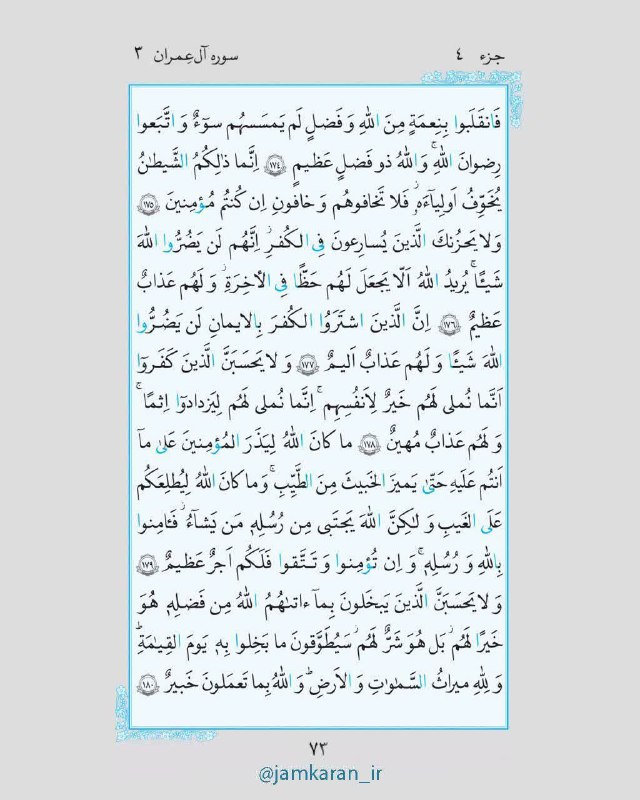 جزء ٤
سوره آل‌عِمران ٣
فَانقَلَبوا بِنِعمَةٍ مِنَ اللهِ وَ فَضلٍ لَم يَمسَسهُم سوٓءٌ وَ اتَّبَعوا
رِضوانَ اللهِ ۗ وَ اللهُ ذو فَضلٍ عَظيمٍ ﴿١٧٤﴾ اِنَّما ذٰلِكُمُ الشَّيطٰنُ
يُخَوِّفُ اَولِيآءَهٗ فَلا تَخافوهُم وَ خافونِ اِن كُنتُم مُؤمِنينَ ﴿١٧٥﴾
وَ لا يَحزُنكَ الَّذينَ يُسارِعونَ فِى الكُفرِ ۚ اِنَّهُم لَن يَضُرُّوا اللهَ
شَيـًٔا ۗ يُريدُ اللهُ اَلّا يَجعَلَ لَهُم حَظًّا فِى الأخِرَةِ ۖ وَ لَهُم عَذابٌ
عَظيمٌ ﴿١٧٦﴾ اِنَّ الَّذينَ اشتَرَوُا الكُفرَ بِالايمانِ لَن يَضُرُّوا
اللهَ شَيـًٔا وَ لَهُم عَذابٌ اَليمٌ ﴿١٧٧﴾ وَ لا يَحسَبَنَّ الَّذينَ كَفَروٓا
اَنَّما نُملى لَهُم خَيرٌ لِاَنفُسِهِم ۚ اِنَّما نُملى لَهُم لِيَزدادوٓا اِثمًا ۚ
وَ لَهُم عَذابٌ مُهينٌ ﴿١٧٨﴾ ما كانَ اللهُ لِيَذَرَ المُؤمِنينَ عَلىٰ مآ
اَنتُم عَلَيهِ حَتّىٰ يَميزَ الخَبيثَ مِنَ الطَّيِّبِ ۗ وَ ما كانَ اللهُ لِيُطلِعَكُم
عَلَى الغَيبِ وَ لٰكِنَّ اللهَ يَجتَبى مِن رُسُلِهٖ مَن يَشآءُ ۖ فَـٔامِنوا
بِاللهِ وَ رُسُلِهٖ ۚ وَ اِن تُؤمِنوا وَ تَتَّقوا فَلَكُم اَجرٌ عَظيمٌ ﴿١٧٩﴾
وَ لا يَحسَبَنَّ الَّذينَ يَبخَلونَ بِمآ ءاتىٰهُمُ اللهُ مِن فَضلِهٖ هُوَ
خَيرًا لَهُم ۖ بَل هُوَ شَرٌّ لَهُم ۖ سَيُطَوَّقونَ ما بَخِلوا بِهٖ يَومَ القِيٰمَةِ ۗ
وَ لِلّٰهِ ميراثُ السَّمٰوٰتِ وَ الاَرضِ ۗ وَ اللهُ بِما تَعمَلونَ خَبيرٌ ﴿١٨٠﴾
٧٣
@jamkaran_ir